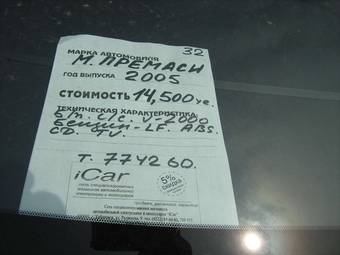 32
МАРКА АВТОМОБИЛЯ
М. ПРЕМАСИ
ГОД ВЫПУСКА 2005
СТОИМОСТЬ 14,500 у.е.
ТЕХНИЧЕСКАЯ ХАРАКТЕРИСТИКА
Б/П. С/С. V-2000
Бензин-LF. ABS.
CD. TV.
Т. 774260.
iCar
5% скидка